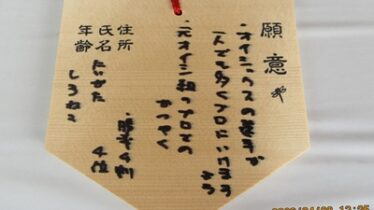 願意
・オイシックスの若手が
一人でも多くプロにいけます
よう
・元オイシン組のプロでの
かつやく
・勝率4割
4位
住所
氏名
年齢
にいがた
しろねこ